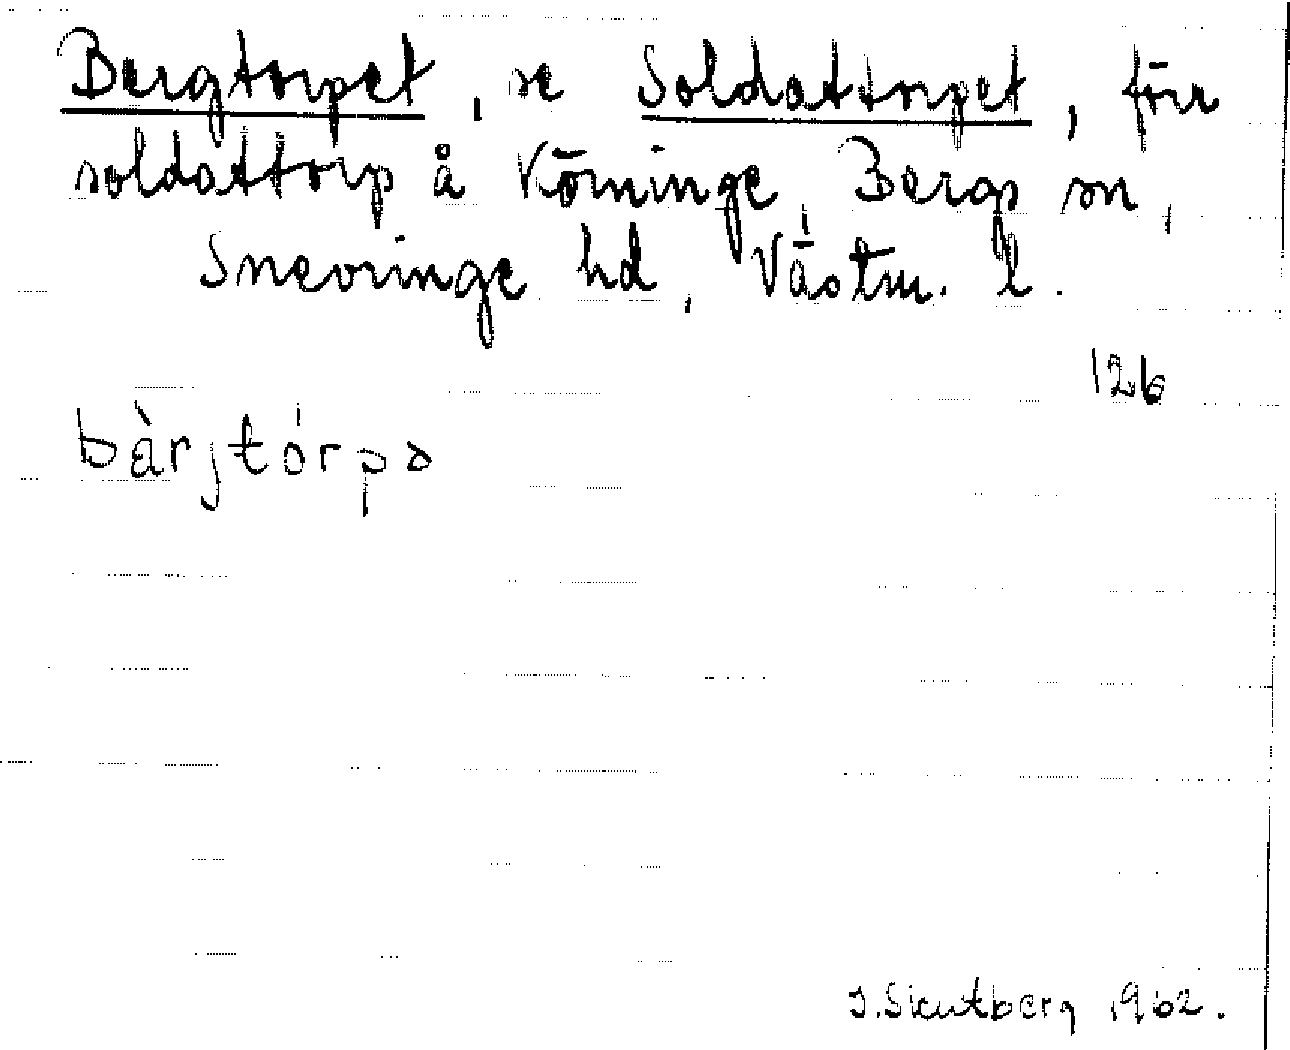 Bergtorpet, se Soldattorpet, förr
soldattorp å Vörninge Bergs sn,
Snevringe hd, Västm. l.
126
bàrjtórpə
1962.